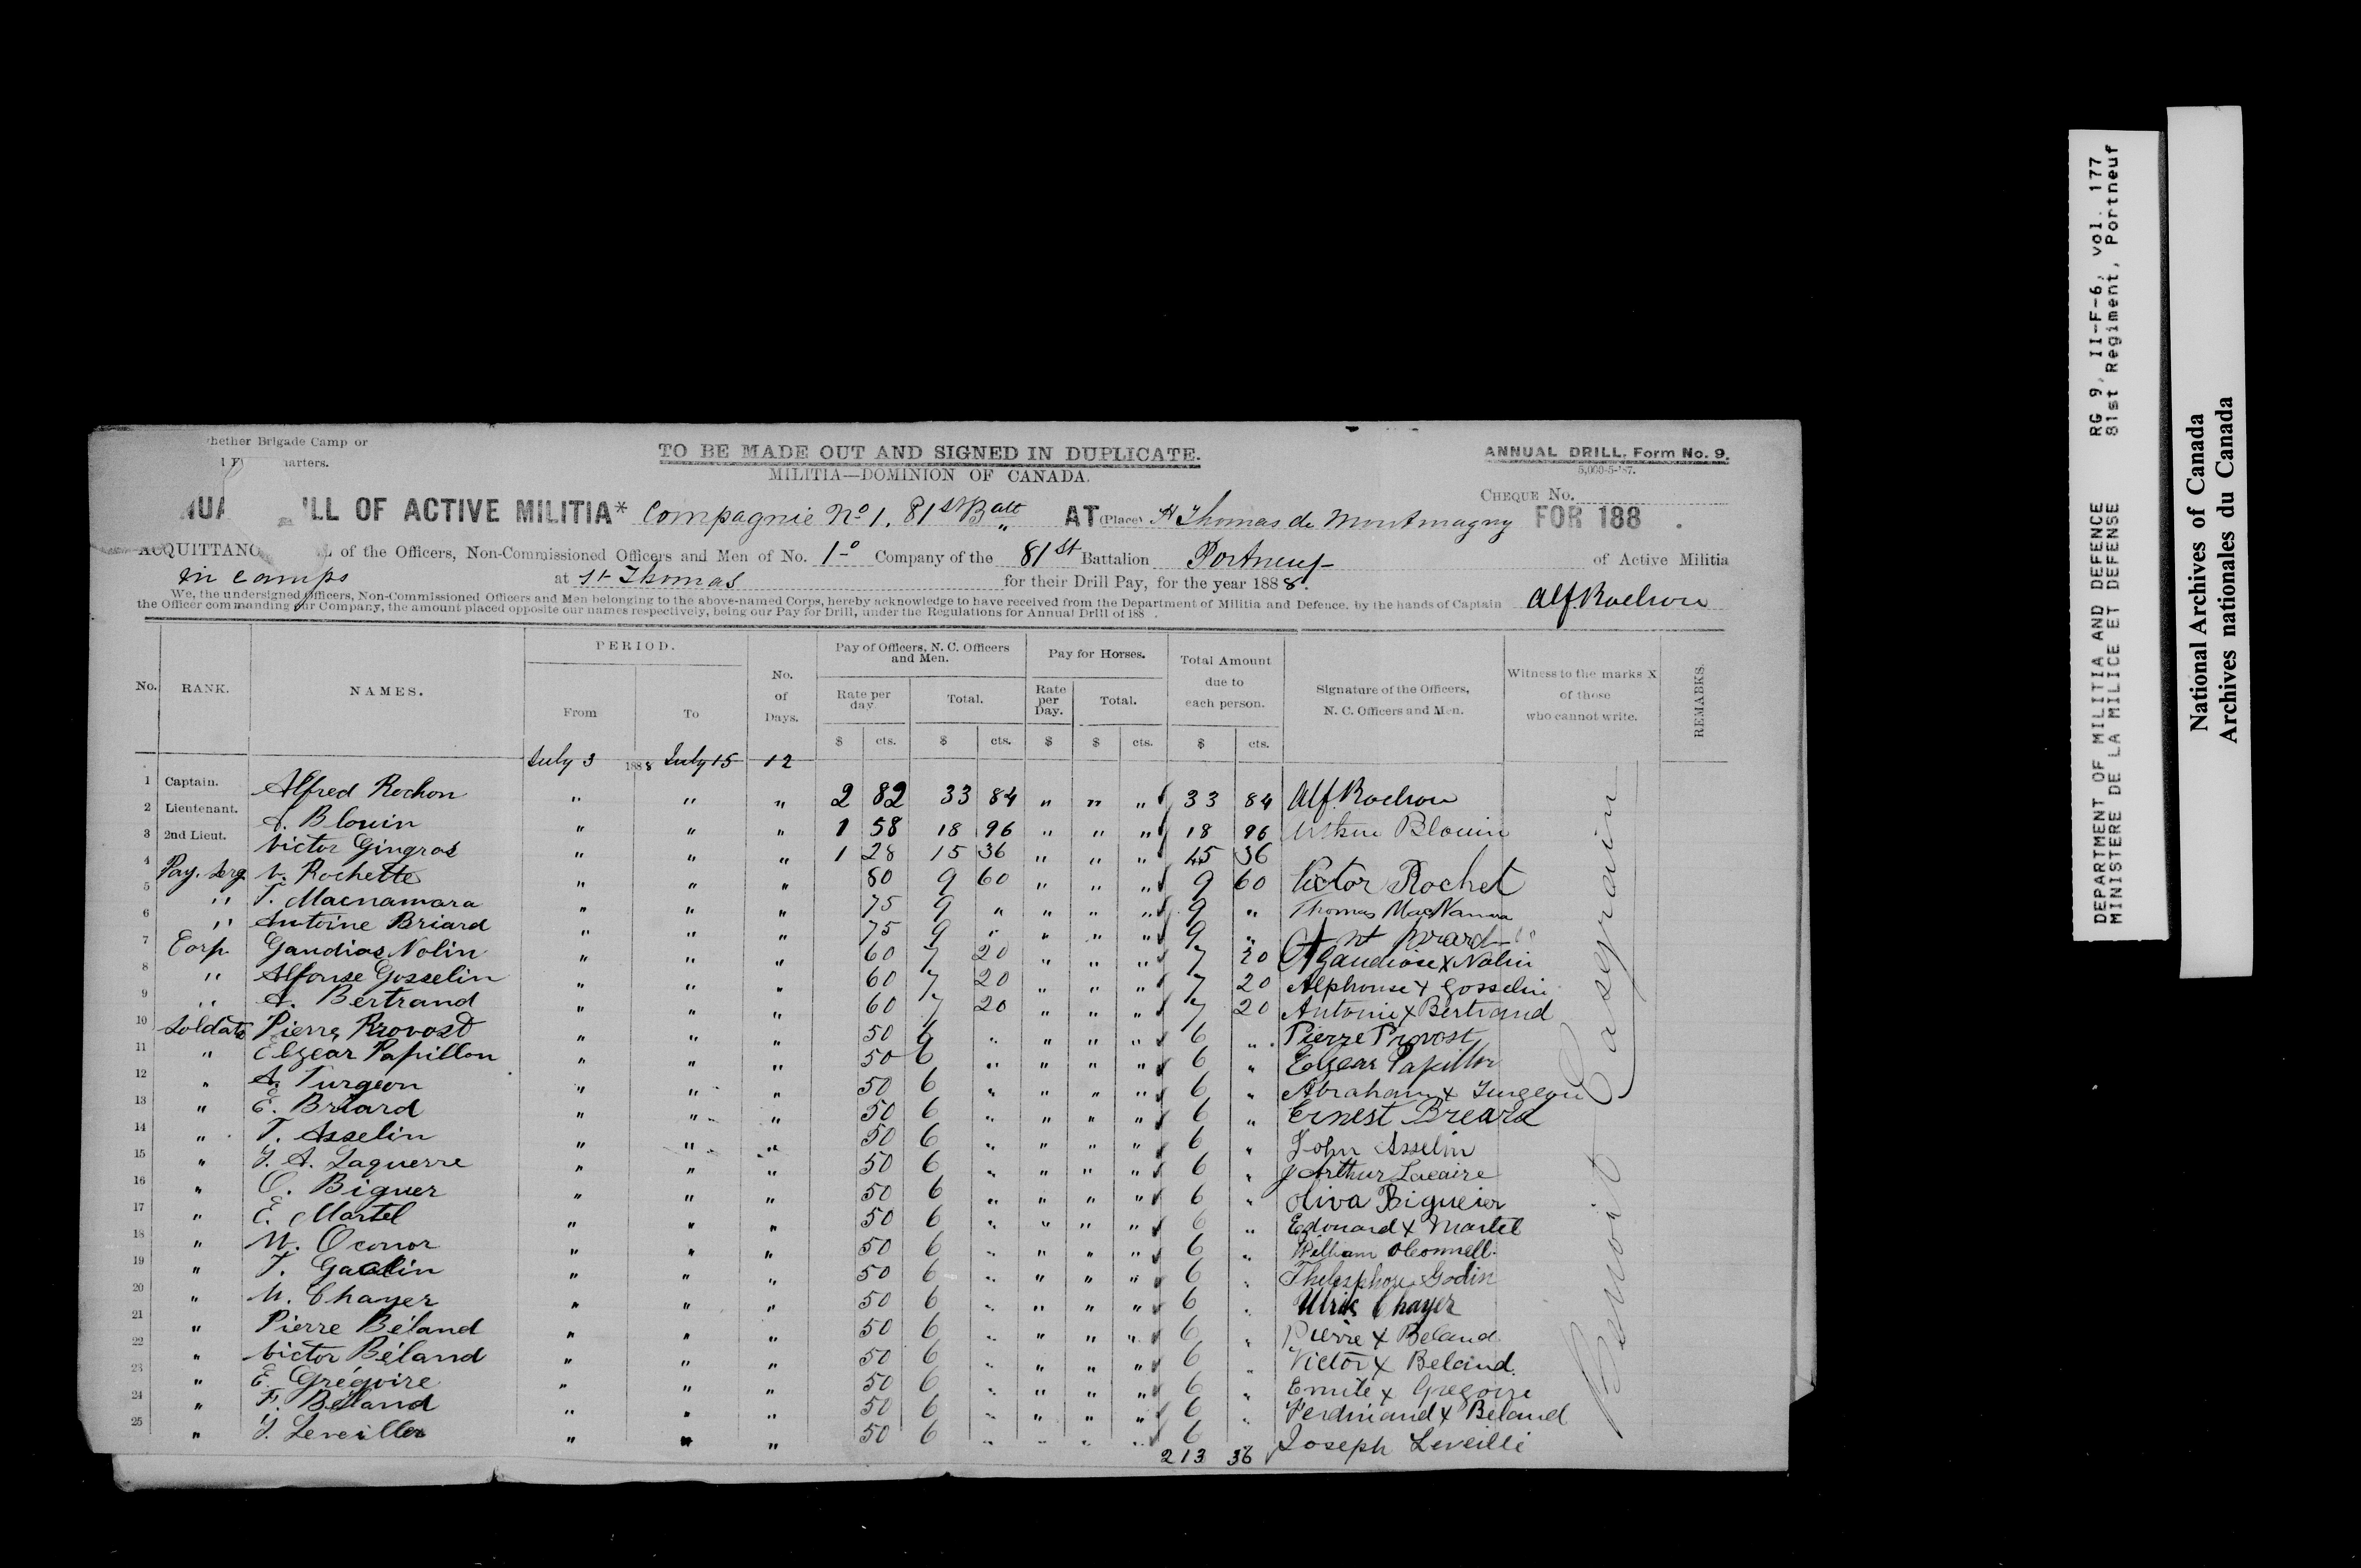 hether Brigade Camp or
TO BE MADE OUT AND SIGNED IN DUPLICATE.
ANNUAL DRILL, Form No. 9.
arters.
MILITIA—DOMINION OF CANADA.
5,000-5-'87.
CHEQUE No.
NUA ILL OF ACTIVE MILITIA* Compagnie No 1. 81st Batt AT (Place) St Thomas de Montmagny FOR 188 .
ACQUITTANC L of the Officers, Non-Commissioned Officers and Men of No. 1o Company of the 81st Battalion Portneuf of Active Militia
in camps at St Thomas for their Drill Pay, for the year 1888.
We, the undersigned Officers, Non-Commissioned Officers and Men belonging to the above-named Corps, hereby acknowledge to have received from the Department of Militia and Defence, by the hands of Captain Alf. Rochon
the Officer commanding our Company, the amount placed opposite our names respectively, being our Pay for Drill, under the Regulations for Annual Drill of 188 .
No. RANK. NAMES. PERIOD. From To No. of Days. Pay of Officers, N. C. Officers and Men. Rate per day. Total. Pay for Horses. Rate per Day. Total. Total Amount due to each person. Signature of the Officers, N. C. Officers and Men. Witness to the marks X of those who cannot write. REMARKS.
$ cts. $ cts. $ $ cts. $ cts.
July 3 1888 July 15 12
1 Captain. Alfred Rochon " " " 2 82 33 84 " " " 33 84 Alf. Rochon
2 Lieutenant. A. Blouin " " " 1 58 18 96 " " " 18 96 Arthur Blouin
3 2nd Lieut. Victor Gingras " " " 1 28 15 36 " " " 15 36
4 Pay. Serg V. Rochette " " " 80 9 60 " " " 9 60 Victor Rochet
5 " T. Macnamara " " " 75 9 " " " " 9 " Thomas MacNamara
6 " Antoine Briard " " " 75 9 " " " " 9 "
7 Corp. Gaudias Nolin " " " 60 7 20 " " " 7 20 Gaudiose x Nolin
8 " Alfonse Gosselin " " " 60 7 20 " " " 7 20 Alphonse x Gosselin
9 " A. Bertrand " " " 60 7 20 " " " 7 20 Antoine x Bertrand
10 Soldats Pierre Provost " " " 50 6 " " " " 6 " Pierre Provost
11 " Elzear Papillon " " " 50 6 " " " " 6 " Elzear Papillon
12 " A. Turgeon " " " 50 6 " " " " 6 " Abraham x Turgeon
13 " E. Briard " " " 50 6 " " " " 6 " Ernest Breard
14 " T. Asselin " " " 50 6 " " " " 6 " John Asselin
15 " J. A. Laguerre " " " 50 6 " " " " 6 " J Arthur Lacaire
16 " O. Biguer " " " 50 6 " " " " 6 " Oliva Bigueier
17 " E. Martel " " " 50 6 " " " " 6 " Edouard x Martel
18 " W. Oconor " " " 50 6 " " " " 6 " William OConnell.
19 " T. Gaudin " " " 50 6 " " " " 6 " Thelesphore Godin
20 " U. Chayer " " " 50 6 " " " " 6 " Ulric Chayer
21 " Pierre Béland " " " 50 6 " " " " 6 " Pierre x Beland
22 " Victor Béland " " " 50 6 " " " " 6 " Victor x Beland.
23 " E. Grégoire " " " 50 6 " " " " 6 " Emile x Gregoire
24 " F. Béland " " " 50 6 " " " " 6 " Ferdinand x Beland
25 " J. Leveiller " " " 50 6 " " " " 6 " Joseph Leveillé
213 36
Benoit Casgrain
DEPARTMENT OF MILITIA AND DEFENCE RG 9, II-F-6, vol. 177
MINISTERE DE LA MILICE ET DEFENSE 81st Regiment, Portneuf
National Archives of Canada
Archives nationales du Canada